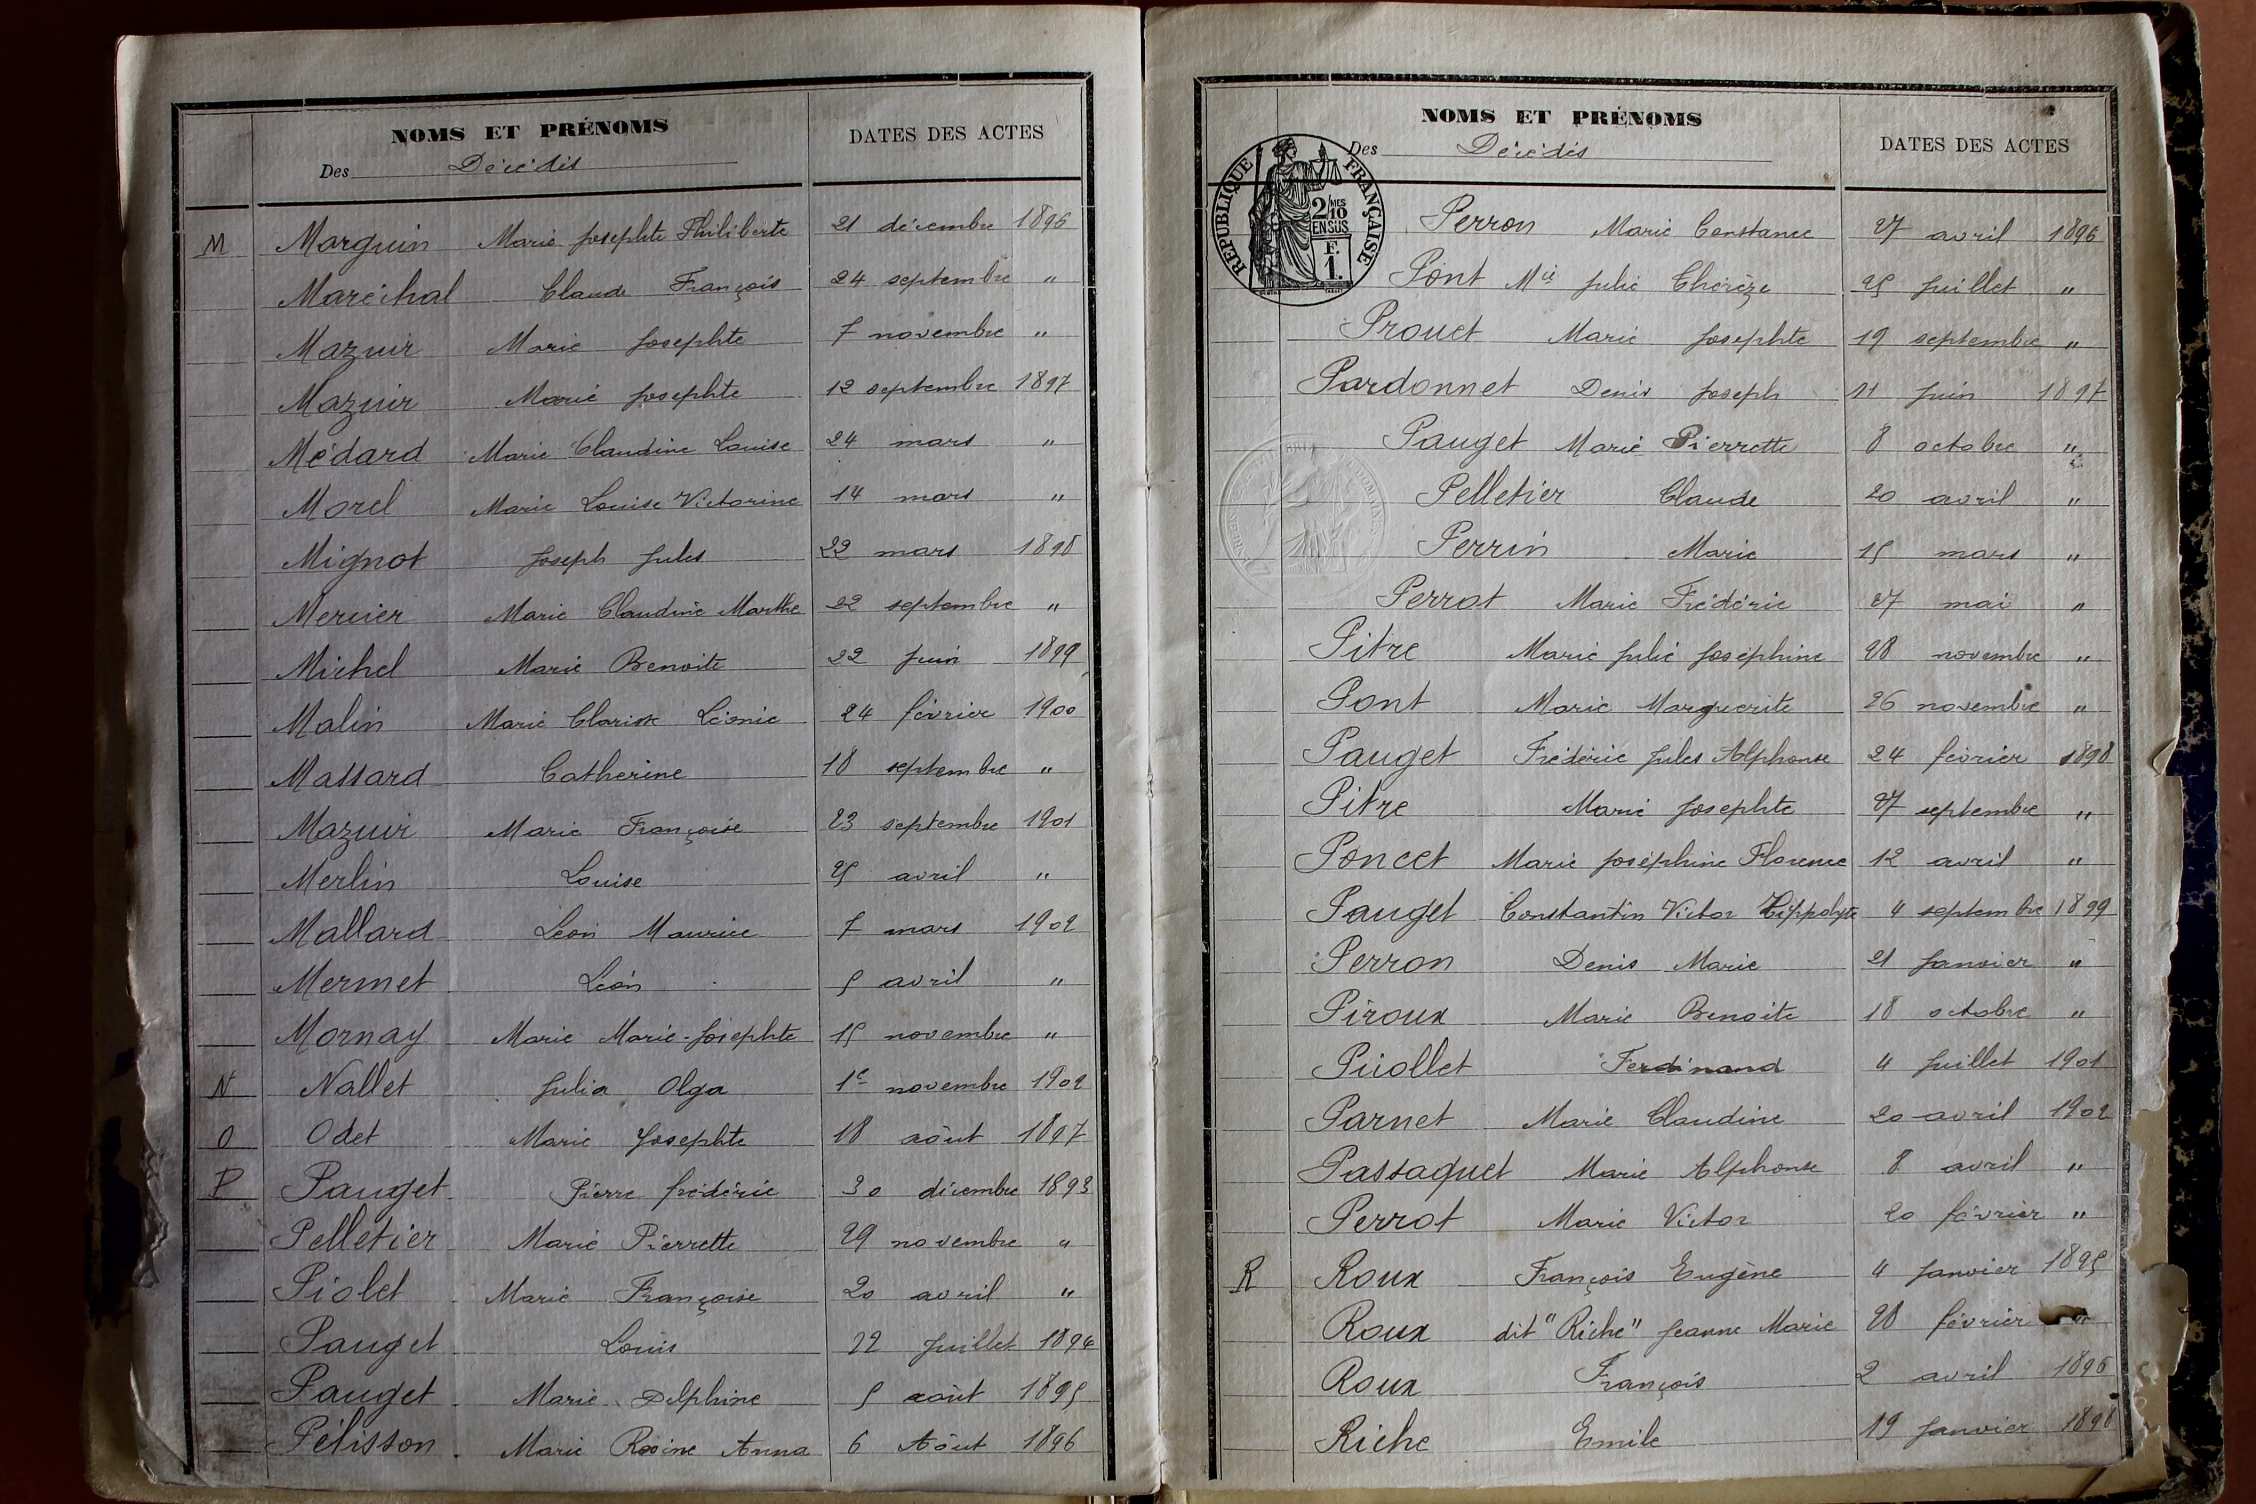 NOMS ET PRÉNOMS
Des Décédés
DATES DES ACTES
M Marguin Marie Josephte Philiberte 21 décembre 1896
Maréchal Claude François 24 septembre "
Mazuir Marie Josephte 7 novembre "
Mazuir Marie Josephte 12 septembre 1897
Médard Marie Claudine Louise 24 mars "
Morel Marie Louise Victorine 14 mars "
Mignot Joseph Jules 22 mars 1898
Mercier Marie Claudine Marthe 22 septembre "
Michel Marie Benoite 22 Juin 1899
Malin Marie Clarisse Léonie 24 février 1900
Massard Catherine 18 septembre "
Mazuir Marie Françoise 23 septembre 1901
Merlin Louise 25 avril "
Mallard Léon Maurice 7 mars 1902
Mermet Léon 5 avril "
Mornay Marie Marie-Josephte 15 novembre "
N Nallet Julia Olga 1e novembre 1902
O Odet Marie Josephte 18 aôut 1897
P Pauget Pierre frédéric 30 décembre 1893
Pelletier Marie Pierrette 29 novembre "
Piolet Marie Françoise 20 avril "
Pauget Louis 22 Juillet 1894
Pauget Marie Delphine 5 aôut 1895
Pélisson Marie Rosine Anna 6 Aôut 1896
NOMS ET PRÉNOMS
Des Décédés
DATES DES ACTES
RÉPUBLIQUE FRANÇAISE
2/10 MES
EN SUS
F.
1.
Perron Marie Constance 27 avril 1896
Pont Mie Julie Thérèze 25 Juillet "
Prouet Marie Josephte 19 septembre "
Pardonnet Denis Joseph 11 Juin 1897
Pauget Marie Pierrette 8 octobre "
Pelletier Claude 20 avril "
Perrin Marie 15 mars "
Perrot Marie Frédéric 27 mai "
Pitre Marie Julie Joséphine 28 novembre "
Pont Marie Marguerite 26 novembre "
Pauget Frédéric Jules Alphonse 24 février 1898
Pitre Marie Josephte 27 septembre "
Poncet Marie Joséphine Florence 12 avril "
Pauget Constantin Victor Hippolyte 4 septembre 1899
Perron Denis Marie 21 Janvier "
Piroux Marie Benoite 18 octobre "
Piiollet Ferdinand 4 Juillet 1901
Parnet Marie Claudine 20 avril 1902
Passaquet Marie Alphonse 8 avril "
Perrot Marie Victor 20 février "
R Roux François Eugène 4 Janvier 1895
Roux dit "Riche" Jeanne Marie 28 février "
Roux François 2 avril 1896
Riche Emile 19 Janvier 1898